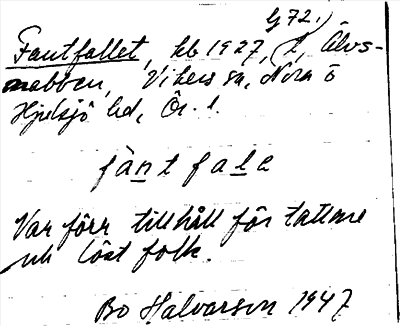 lg 72.
Fantfallet, kb 1927, l, Älvs-
nabben, Vikers sn, Nora o
Hjulsjö hd, Ör. l.
fànt fale
Var förr tillhåll för tattare
och löst folk.
Bo Halvarson 1947